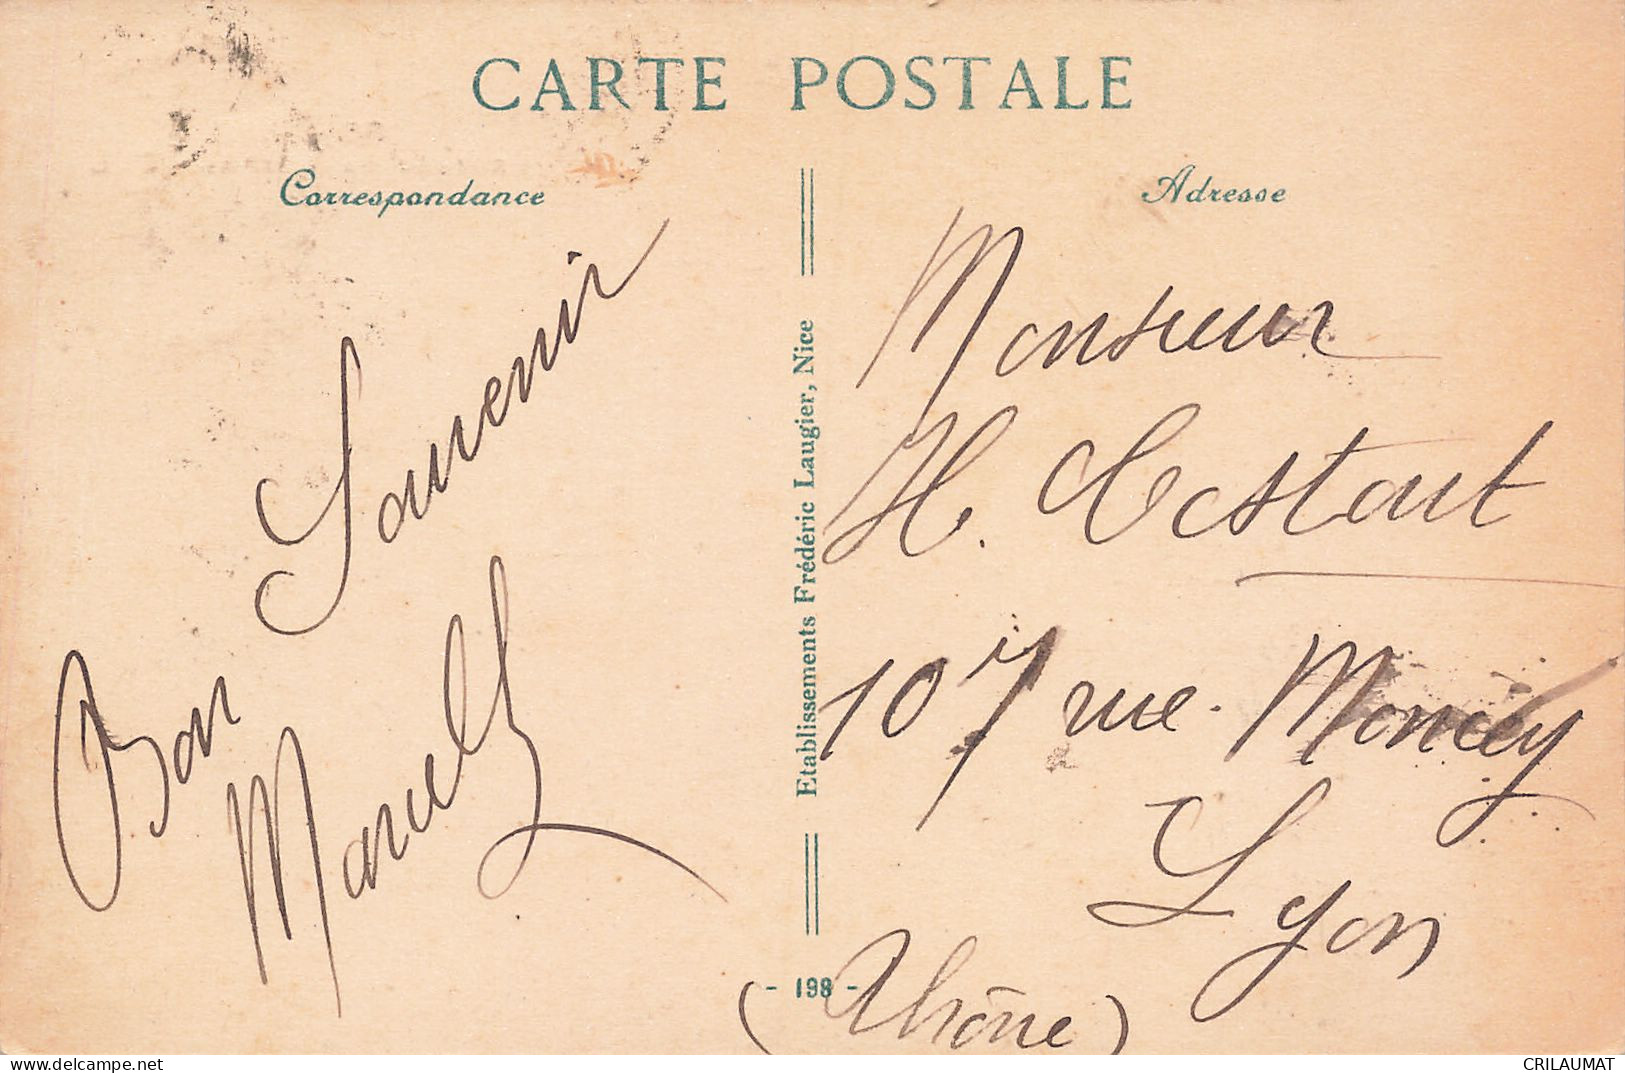 CARTE POSTALE
Correspondance
Adresse
Bon Souvenir
Etablissements Frédéric Laugier, Nice
Monsieur
H. Testout
107 rue Moncey
Lyon
(Rhône)
- 198 -
delcampe.net
CRILAUMAT